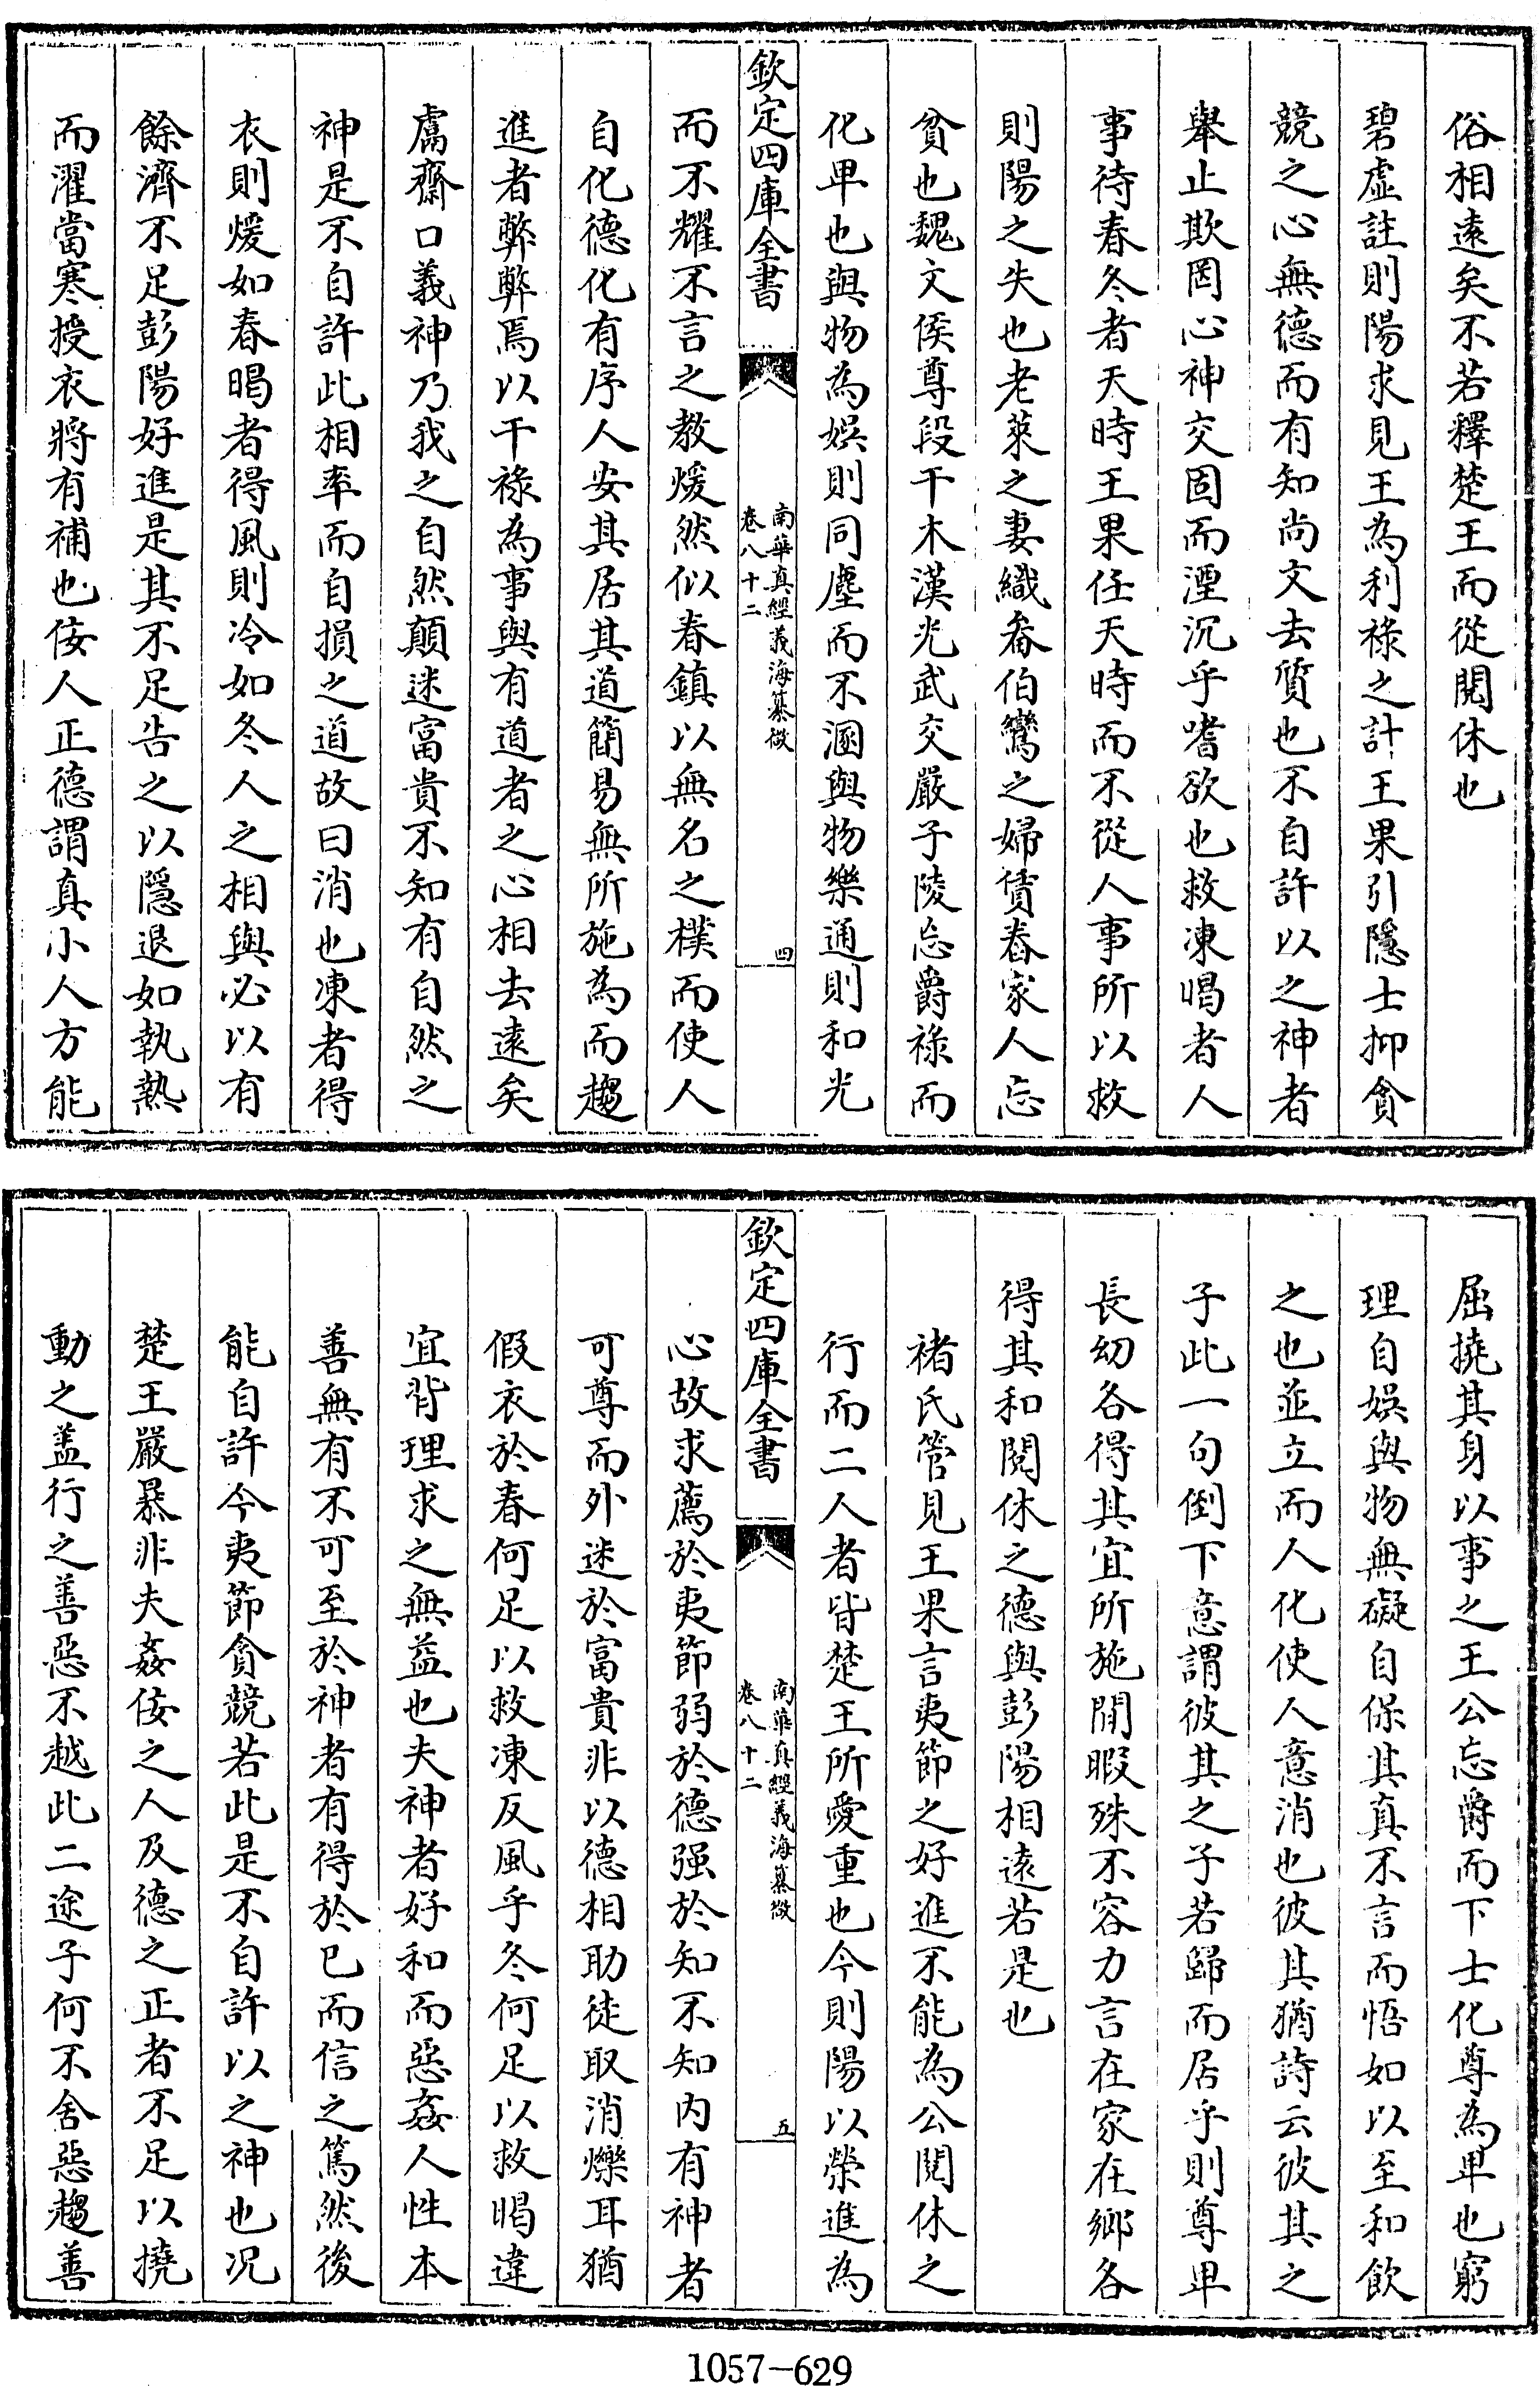 俗相遠矣不若釋楚王而從閱休也
碧虛註則陽求見王為利祿之計王果引隱士抑貪
競之心無德而有知尚文去質也不自許以之神者
舉止欺罔心神交固而湮沉乎嗜欲也救凍暍者人
事待春冬者天時王果任天時而不從人事所以救
則陽之失也老萊之妻織畚伯鸞之婦賃舂家人忘
貧也魏文侯尊段干木漢光武交嚴子陵忘爵祿而
化卑也與物為娛則同塵而不溷與物樂通則和光
欽定四庫全書
南華真經義海纂微
卷八十二
四
而不耀不言之教煖然似春鎮以無名之樸而使人
自化德化有序人安其居其道簡易無所施為而趨
進者弊弊焉以干祿為事與有道者之心相去遠矣
鬳齋口義神乃我之自然顛迷富貴不知有自然之
神是不自許此相率而自損之道故曰消也凍者得
衣則煖如春暍者得風則冷如冬人之相與必以有
餘濟不足彭陽好進是其不足告之以隱退如執熱
而濯當寒授衣將有補也佞人正德謂真小人方能
屈撓其身以事之王公忘爵而下士化尊為卑也窮
理自娛與物無礙自保其真不言而悟如以至和飲
之也並立而人化使人意消也彼其猶詩云彼其之
子此一句倒下意謂彼其之子若歸而居乎則尊卑
長幼各得其宜所施閒暇殊不容力言在家在鄉各
得其和閱休之德與彭陽相遠若是也
褚氏管見王果言夷節之好進不能為公閱休之
行而二人者皆楚王所愛重也今則陽以榮進為
欽定四庫全書
南華真經義海纂微
卷八十二
五
心故求薦於夷節弱於德强於知不知内有神者
可尊而外迷於富貴非以德相助徒取消爍耳猶
假衣於春何足以救凍反風乎冬何足以救暍違
宜背理求之無益也夫神者好和而惡姦人性本
善無有不可至於神者有得於已而信之篤然後
能自許今夷節貪競若此是不自許以之神也况
楚王嚴暴非夫姦佞之人及德之正者不足以撓
動之盖行之善惡不越此二途子何不舍惡趨善
1057-629